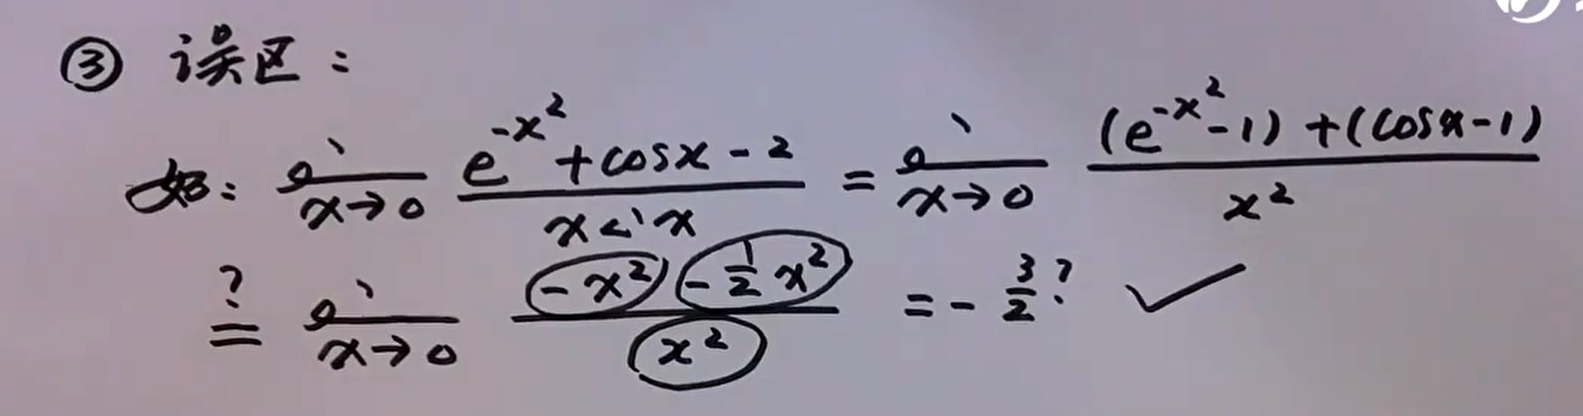 ③ 误区：
如: lim x→0 (e^{-x^2}+cosx-2)/(x sin x) = lim x→0 ((e^{-x^2}-1)+(cosx-1))/x^2
?= lim x→0 (-x^2-1/2x^2)/x^2 = -3/2? ✓